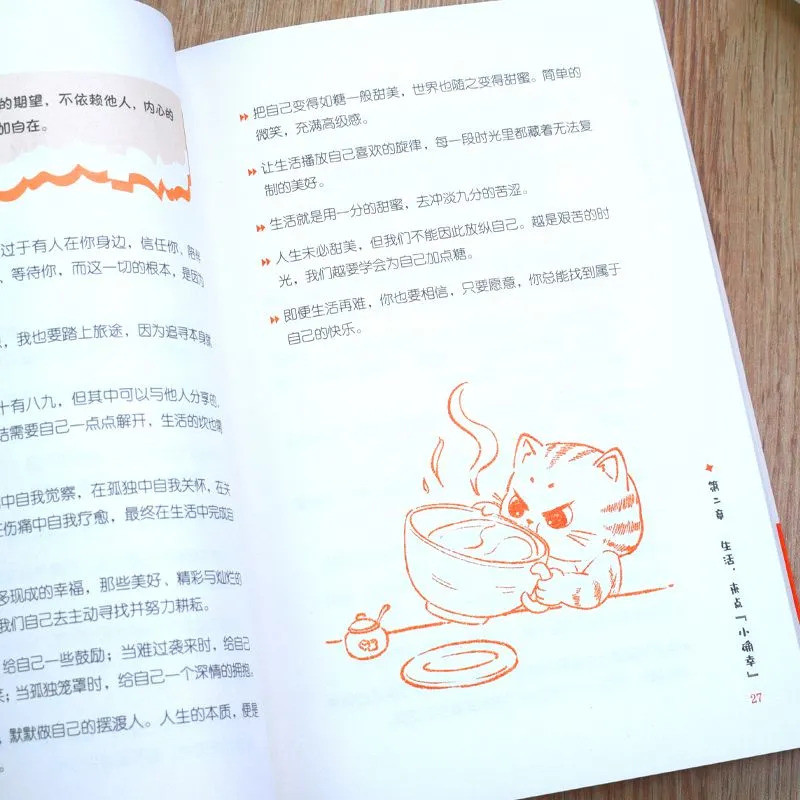 的期望，不依赖他人，内心的
加自在。
过于有人在你身边，信任你、陪伴
、等待你，而这一切的根本，是因为
，我也要踏上旅途，因为追寻本身就
十有八九，但其中可以与他人分享的，
结需要自己一点点解开，生活的坎也需
中自我觉察，在孤独中自我关怀，在
在伤痛中自我疗愈，最终在生活中完成自
多现成的幸福，那些美好、精彩与灿烂的
我们自己去主动寻找并努力耕耘。
给自己一些鼓励；当难过袭来时，给自己
；当孤独笼罩时，给自己一个深情的拥抱。
，默默做自己的摆渡人。人生的本质，便是
把自己变得如糖一般甜美，世界也随之变得甜蜜。简单的
微笑，充满高级感。
让生活播放自己喜欢的旋律，每一段时光里都藏着无法复
制的美好。
生活就是用一分的甜蜜，去冲淡九分的苦涩。
人生未必甜美，但我们不能因此放纵自己。越是艰苦的时
光，我们越要学会为自己加点糖。
即便生活再难，你也要相信，只要愿意，你总能找到属于
自己的快乐。
第二章 生活，来点『小确幸』
27